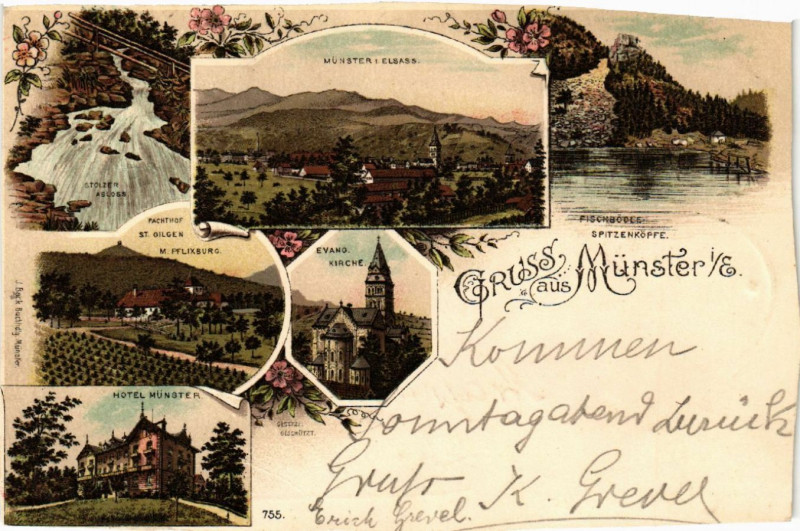 MÜNSTER I. ELSASS.
STOLZER
ABLOSS.
FISCHBÖDLE-
SPITZENKÖPFE.
PACHTHOF
ST. GILGEN
M. PFLIXBURG.
EVANG.
KIRCHE.
GRUSS
aus Münster i/E.
HOTEL MÜNSTER
GESETZL.
GESCHÜTZT.
755.
Kommen
Sonntagabend zurück
Gruss K. Grevel
Erich Grevel.